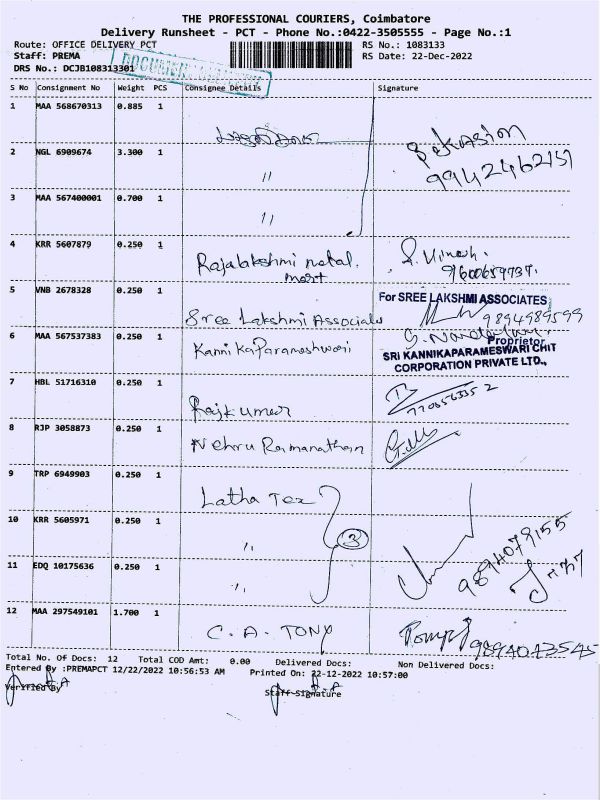 THE PROFESSIONAL COURIERS, Coimbatore
Delivery Runsheet - PCT - Phone No.:0422-3505555 - Page No.:1
Route: OFFICE DELIVERY PCT RS No.: 1083133
Staff: PREMA RS Date: 22-Dec-2022
DRS No.: DCJB108313301
S No Consignment No Weight PCS Consignee Details Signature
1 MAA 568670313 0.885 1
2 NGL 6909674 3.300 1 "
9942462151
3 MAA 567400001 0.700 1 "
4 KRR 5607879 0.250 1 Rajalakshmi metal mart S. Vinesh.
9600659737.
5 VNB 2678328 0.250 1 Sree Lakshmi Associates For SREE LAKSHMI ASSOCIATES
9894989599
Proprietor
6 MAA 567537383 0.250 1 Kannika Parameshwari SRI KANNIKAPARAMESWARI CHIT
CORPORATION PRIVATE LTD.,
7 HBL 51716310 0.250 1 Rajkumar
8 RJP 3058873 0.250 1 Nehru Ramanathan
9 TRP 6949903 0.250 1 Latha Tex
10 KRR 5605971 0.250 1 " 3 9894079155
11 EDQ 10175636 0.250 1 "
12 MAA 297549101 1.700 1 C. A. TONY 9894043545
Total No. Of Docs: 12 Total COD Amt: 0.00 Delivered Docs: Non Delivered Docs:
Entered By :PREMAPCT 12/22/2022 10:56:53 AM Printed On: 22-12-2022 10:57:00
Verified By Staff Signature